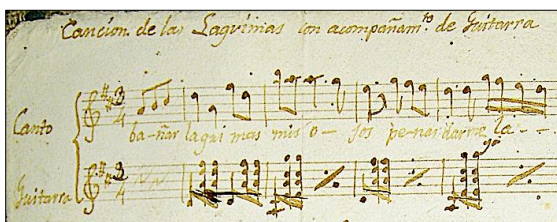 Cancion de las Lagrimas con acompañam.to de Guitarra
Canto
3
4
ba-ñar lagri mas mis o- jos pe-nar darme la - -
Guitarra
3
4